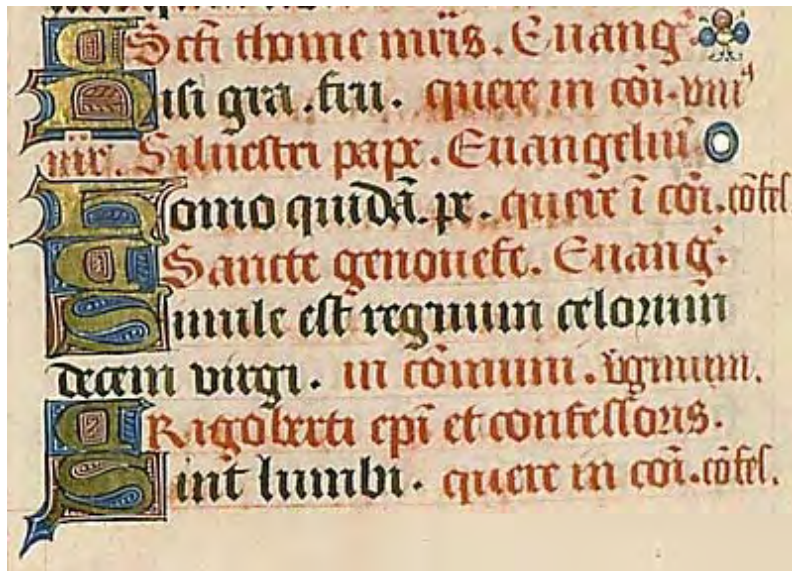 Scti thome mris. Euang̃.
Nisi gra. fru. quere in cõi. unius
mr̃. Siluestri pape. Euangeliũ
Homo quidã. pe. quere ĩ cõi. cõfes
Sancte genouefe. Euang̃.
Simile est regnum celorum
decem virgi. in cõmuni. v̾ginum.
Rigoberti epĩ et confessoris.
Sint lumbi. quere in cõi. cõfes.